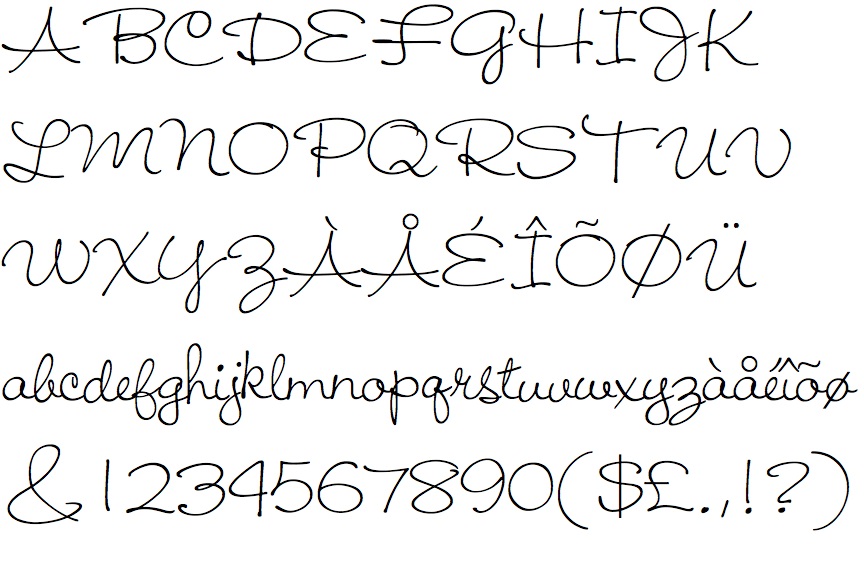 ABCDEFGHIJK
LMNOPQRSTUV
WXYZÀÅÉÎÕØÜ
abcdefghijklmnopqrstuvwxyzàåéîõø
&1234567890($£.,!?)